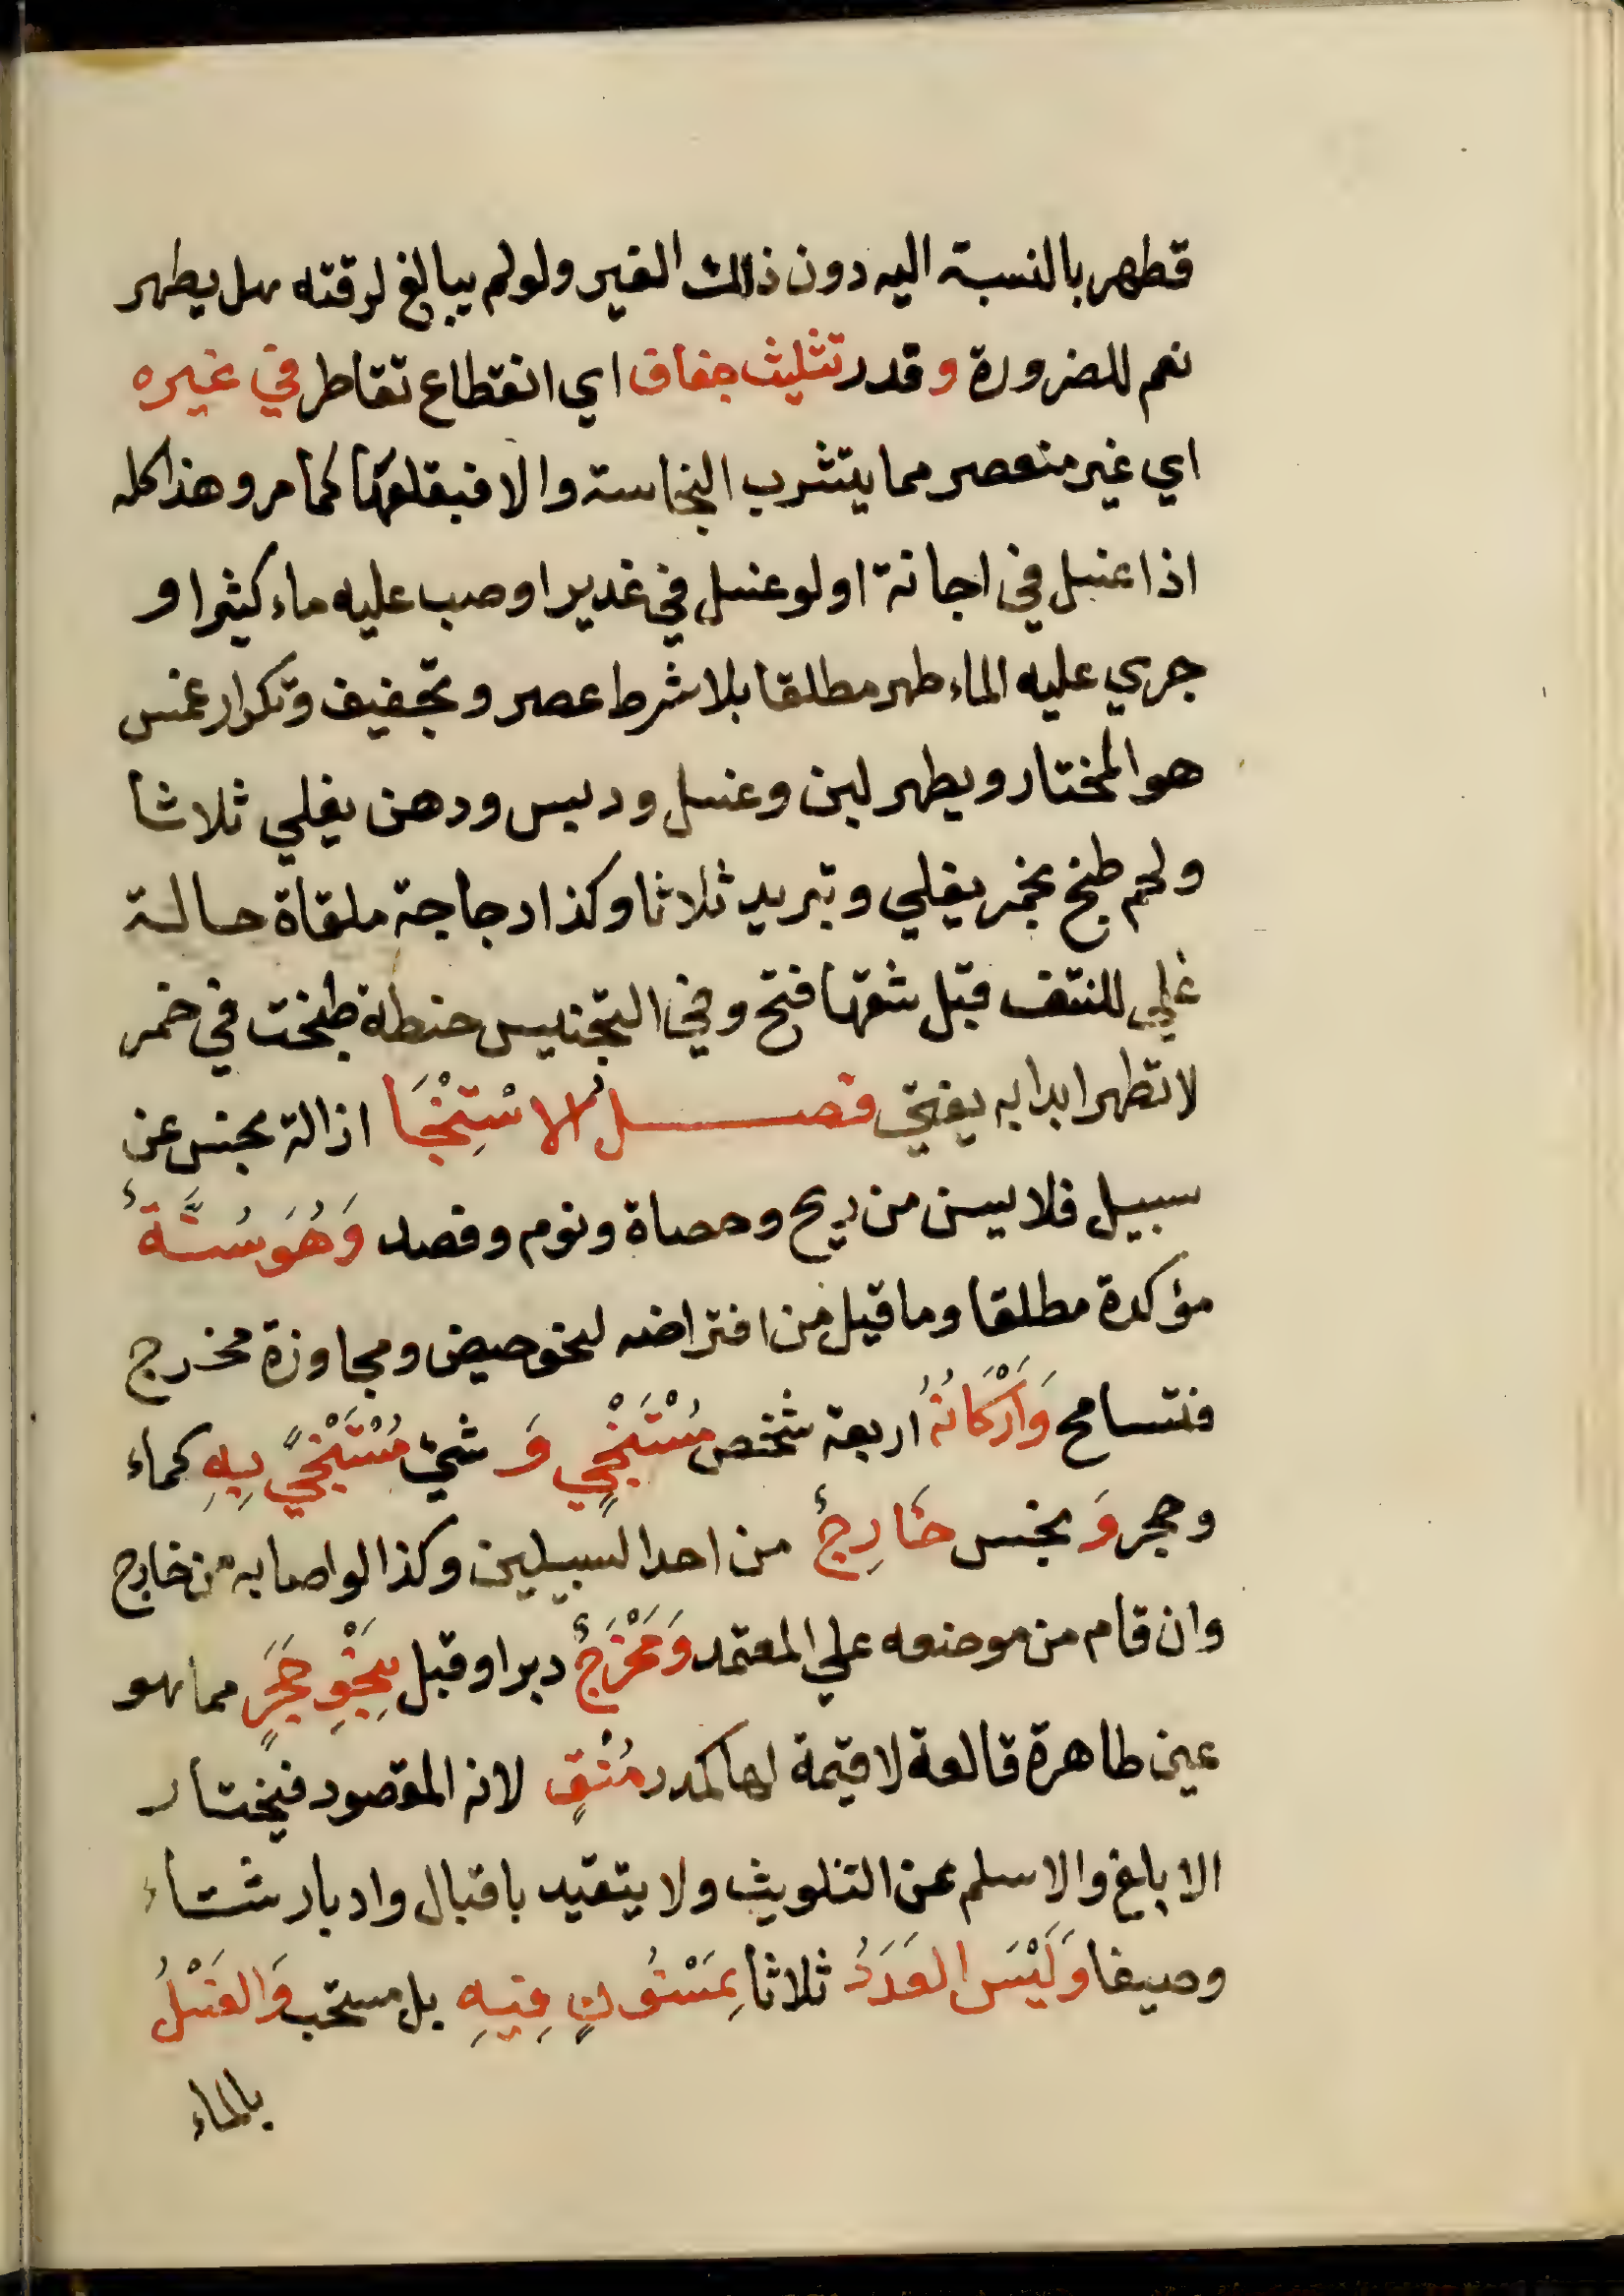 قطهر بالنسبة اليه دون ذلك الغير ولو لم يبالغ لرقته هل يطهر
نعم للضرورة و قدر تثليث جفاف اي انقطاع تقاطر في غيره
اي غير منعصر مما يتشرب النجاسة والا فبقلعها كما مر وهذا كله
اذا غسل في اجانة او لو غسل في غدير او صب عليه ماء كثير او
جري عليه الماء طهر مطلقا بلا شرط عصر وتجفيف وتكرار غمس
هو المختار ويطهر لبن وعسل ودبس ودهن يغلي ثلاثا
ولحم طبخ بخمر يغلي وتبريد ثلاثا وكذا دجاجة ملقاة حالة
غلي للنتف قبل شقها فتح وفي التجنيس حنطة طبخت في خمر
لا تطهر ابدا به يفتي فصل الاسْتِنْجَا ازالة نجس عن
سبيل فلا يسن من ريح وحصاة ونوم وفصد وَهُوَ سُنَّةٌ
مؤكدة مطلقا وما قيل من افتراضه لنحو حيض ومجاوزة مخرج
فتسامح وَاَرْكَانُهُ اربعة شخص مُسْتَنْجٍي وَ شيء مُسْتَنْجًي بِهِ كماء
وحجر وَ نجس خَارِجٌ من احد السبيلين وكذا لو اصابه من خارج
وان قام من موضعه علي المعتمد وَمَخْرَجٌ دبر او قبل بِنَحْوِ حَجَرٍ مما هو
عين طاهرة قالعة لا قيمة لها كمدر مُنْقٍ لانه المقصود فيختار
الابلغ والاسلم عن التلويث ولا يتقيد باقبال وادبار شتاء
وصيفا وَلَيْسَ العَدَدُ ثلاثا بِمَسْنُونٍ فِيهِ بل مستحب وَالغَسْلُ
بالماء